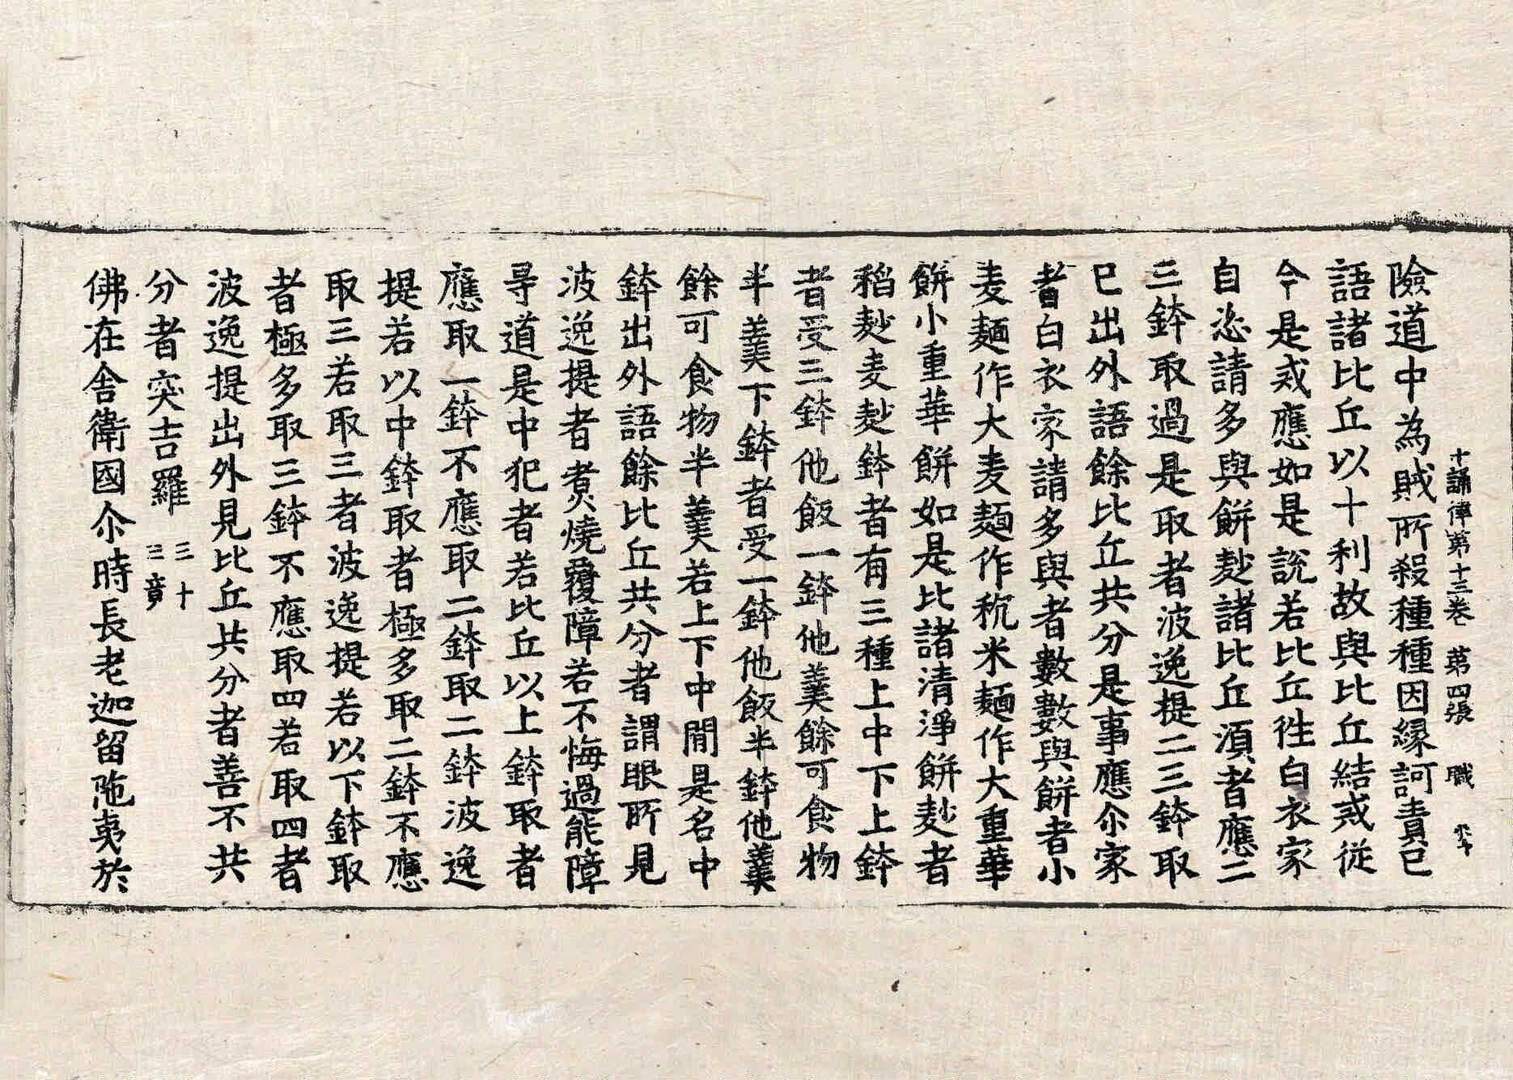 十誦律第十三卷 第四張 職
險道中為賊所殺種種因緣訶責已
語諸比丘以十利故與比丘結戒従
今是戒應如是說若比丘徃白衣家
自恣請多與餅麨諸比丘湏者應二
三鉢取過是取者波逸提二三鉢取
已出外語餘比丘共分是事應尒家
者白衣家請多與者數數與餅者小
麦麺作大麦麺作秔米麺作大重華
餅小重華餅如是比諸清淨餅麨者
稻麨麦麨鉢者有三種上中下上鉢
者受三鉢他飯一鉢他羹餘可食物
半羹下鉢者受一鉢他飯半鉢他羹
餘可食物半羹若上下中間是名中
鉢出外語餘比丘共分者謂眼所見
波逸提者煑燒覆障若不悔過能障
㝵道是中犯者若比丘以上鉢取者
應取一鉢不應取二鉢取二鉢波逸
提若以中鉢取者極多取二鉢不應
取三若取三者波逸提若以下鉢取
者極多取三鉢不應取四若取四者
波逸提出外見比丘共分者善不共
分者突吉羅 三十三竟
佛在舍衛國尒時長老迦留陁夷於